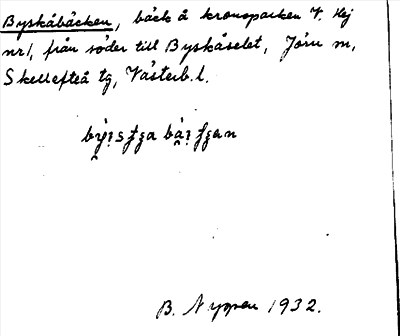 Byskåbäcken, bäck å kronoparken V. Hej
nr 1, från söder till Byskåselet, Jörn sn,
Skellefteå tg, Västerb. l.
B. Nyman 1932.